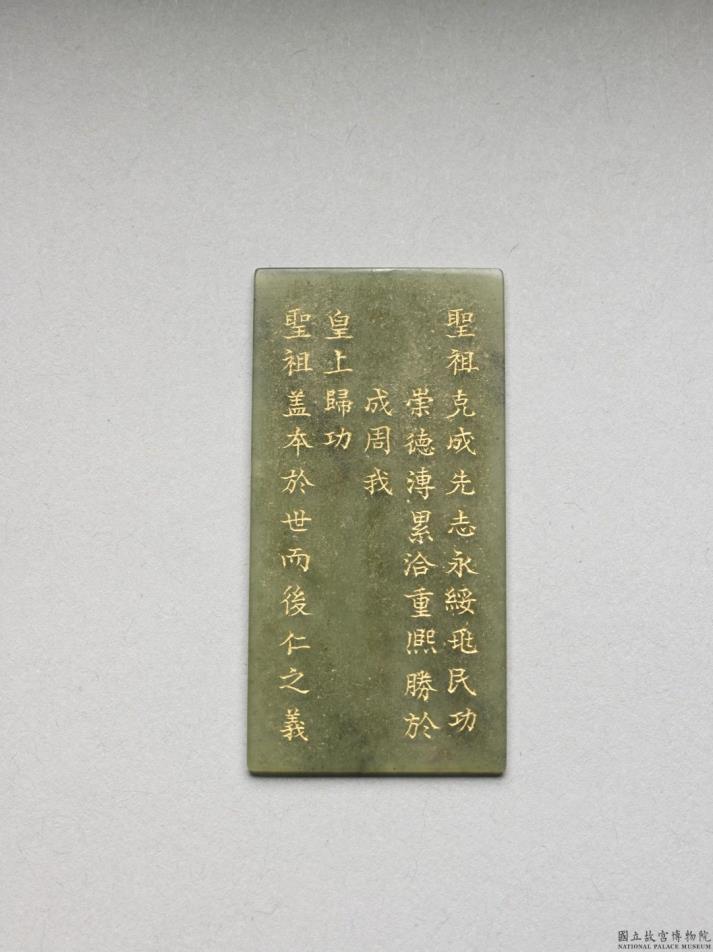 聖祖克成先志永綏兆民功
崇德溥累洽重熈勝於
成周我
皇上歸功
聖祖盖夲於世而後仁之義
國立故宮博物院
NATIONAL PALACE MUSEUM